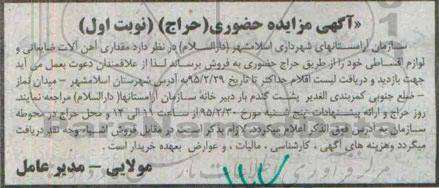 «آگهی مزایده حضوری(حراج) (نوبت اول)
سازمان آرامستانهای شهرداری اسلامشهر (دارالسلام) در نظر دارد مقداری آهن آلات ضایعاتی و
لوازم اقساطی خود را از طریق حراج حضوری به فروش برساند لذا از علاقمندان دعوت بعمل می آید
جهت بازدید و دریافت لیست اقلام حداکثر تا تاریخ ۹۵/۲/۲۹ به آدرس شهرستان اسلامشهر – میدان نماز
– ضلع جنوبی کمربندی الغدیر پشت گلدم بار دبیر خانه سازمان آرامستانها (دارالسلام) مراجعه نمایند.
روز حراج و ارائه پیشنهادات پنج شنبه مورخ ۹۵/۲/۳۰ از ساعت ۱۱ الی ۱۴ و محل حراج در محوطه
سازمان به آدرس فوق الذکر اعلام میگردد. لازم بذکر است در مقابل فروش اشیاء وجه نقد دریافت
میگردد وهزینه های آگهی ، کارشناسی ، مالیات ، و عوارض بعهده خریدار است .
مولایی – مدیر عامل